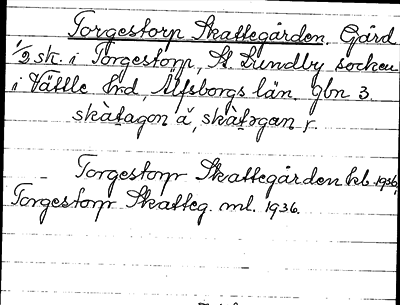 Torgestorp Skattegården. Gård
1/2 sk. i Torgestorp, St. Lundby socken
i Vättle hd, Älfsborgs län. gbn 3.
skàtagon ǎ, skàtəgan r.
Torgestorp Skattegården kb. 1936,
Torgestorp Skatteg. ml. 1936.